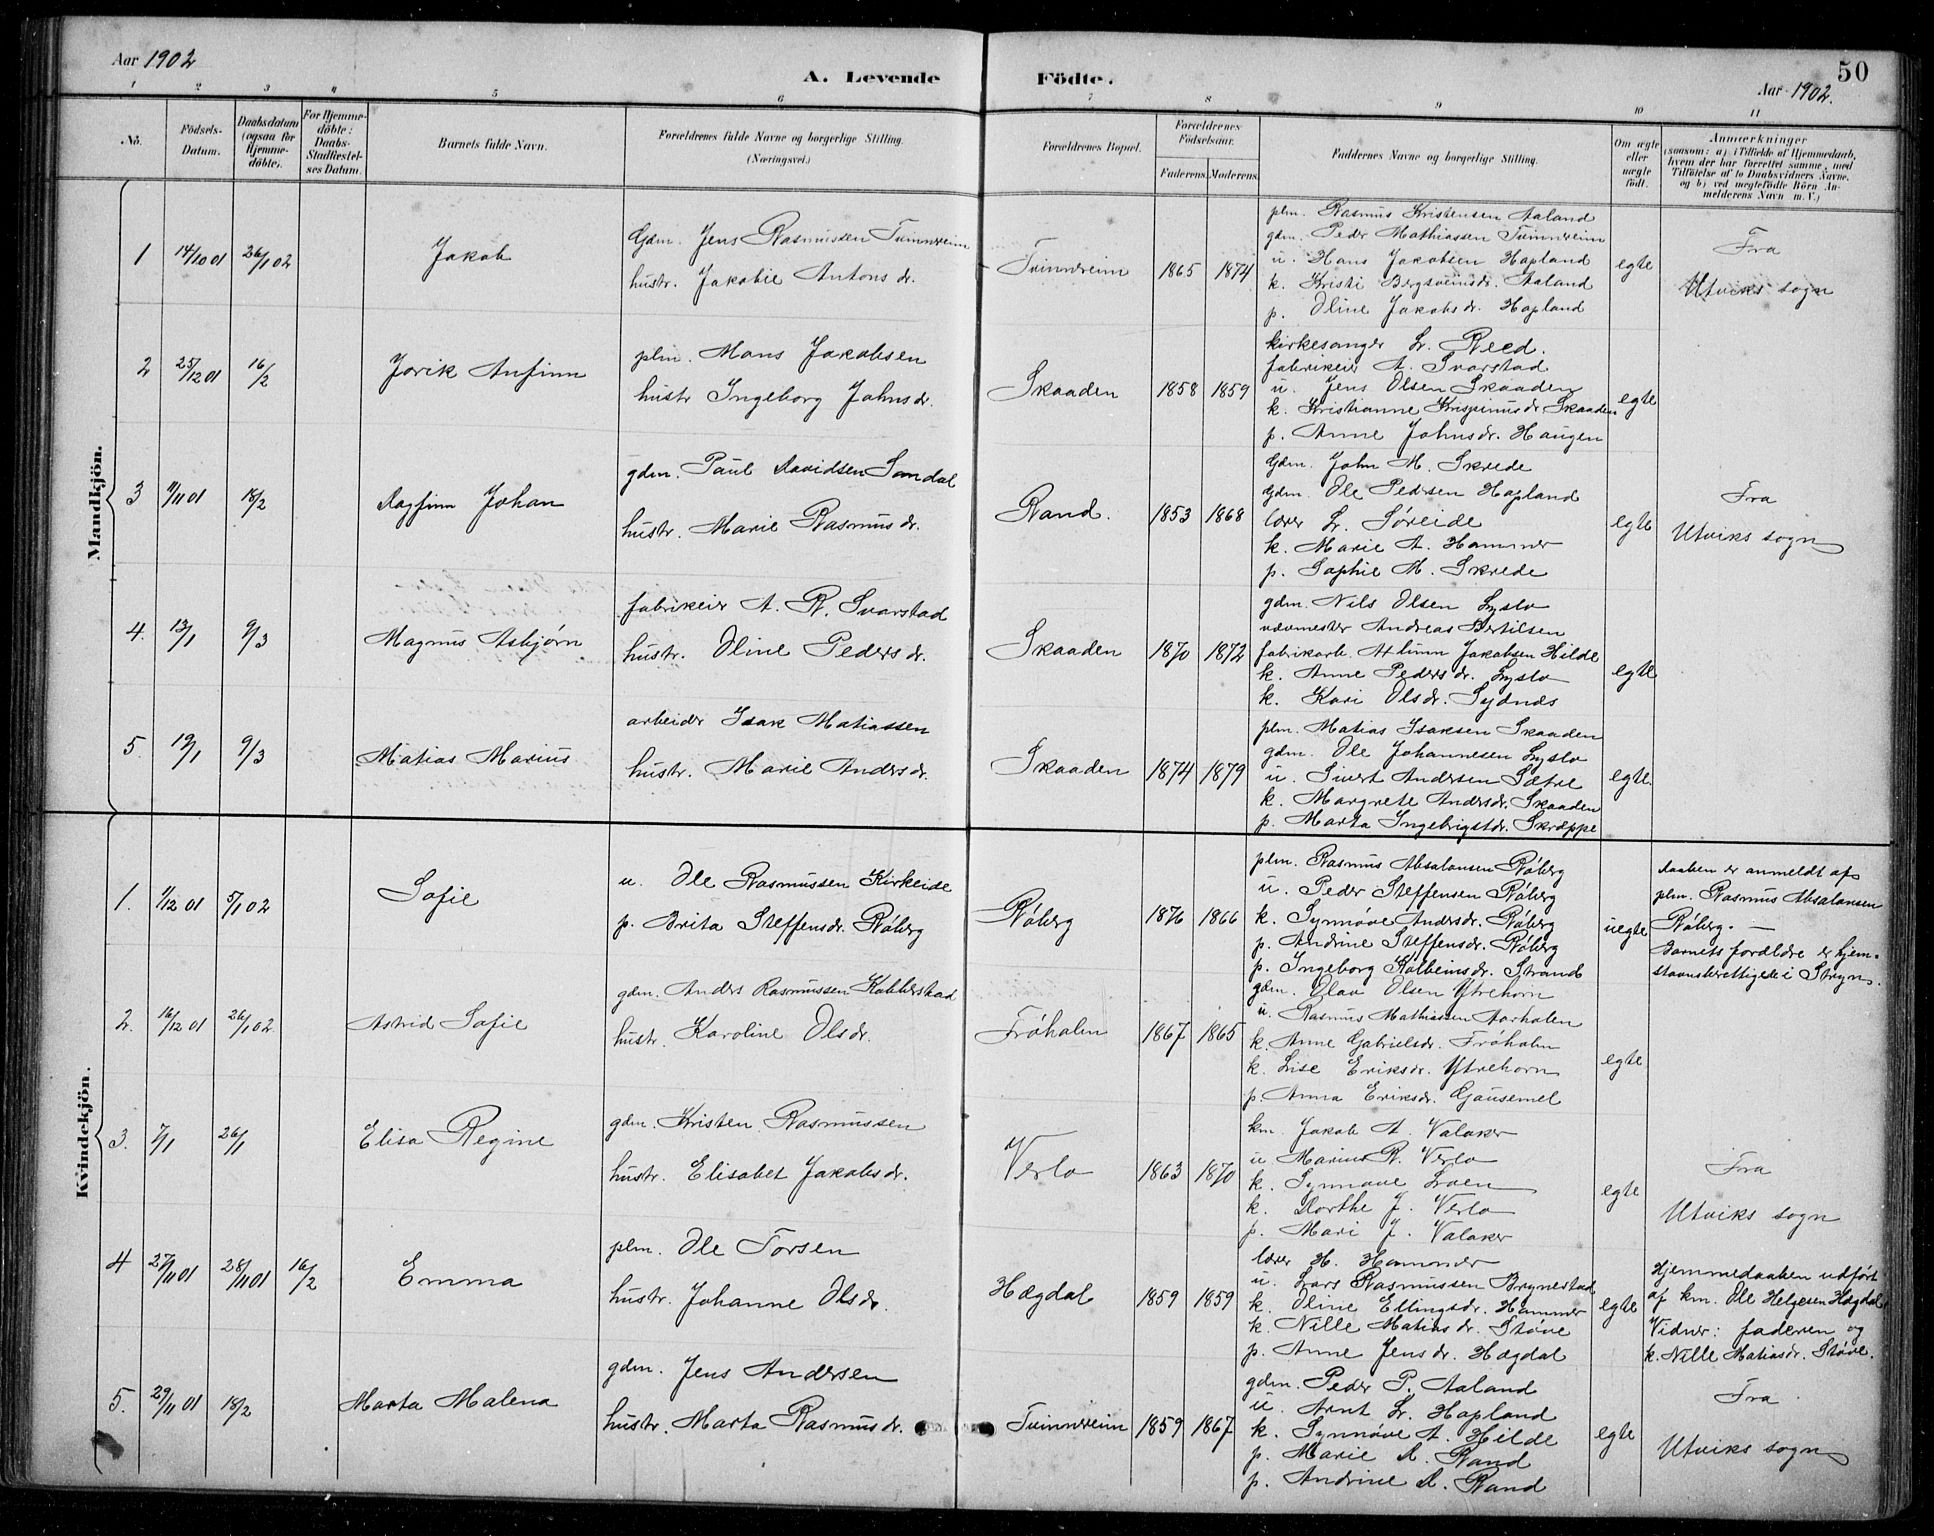 Aar 1902
A. Levende Födte.
50
Aar 1902.
1 2 3 4 5 6 7 8 9 10 11
No.
Födsels-Datum.
Daabsdatum (ogsaa for Hjemmedöbte).
For Hjemmedöbte: Daabs-Stadfæstelses Datum.
Barnets fulde Navn.
Forældrenes fulde Navne og borgerlige Stilling.
(Næringsvei.)
Forældrenes Bopæl.
Forældrenes Födselsaar.
Faderens. Moderens.
Faddernes Navne og borgerlige Stilling.
Om ægte eller uægte födt.
Anmærkninger
(saasom: a) i Tilfælde af Hjemmedaab, hvem der har forrettet samme, med Tilföielse af to Daabsvidners Navne, og b) ved uægtefödte Börn Anmelderens Navn m. V.)
Mandkjön.
1 14/10 01 26/1 02 Jakob
Gdm. Jens Rasmussen Tvinnreim
hustr. Jakobie Antons dr.
Tvinnreim 1865 1874
plm. Rasmus Kristensen Aaland
gdm. Peder Mathiassen Tvinnreim
u. Hans Jakobsen Hopland
k. Kristi Bergsveinsdr. Aaland
p. Oline Jakobsdr. Hopland
egte
Fra
Utviks sogn
2 25/12 01 16/2 Jorik Anfinn
plm. Mons Jakobsen
hustr Ingeborg Johnsdr.
Skaaden 1858 1859
kirkesanger L. Reed.
fabrikeier A. Svarstad
u. Jens Olsen Skaaden
k. Kristianne Krispinusdr. Skaaden
p. Anne Johnsdr. Haugen
egte
3 11/11 01 18/2 Dagfinn Johan
gdm. Paul Davidsen Sandal
hustr. Marie Rasmusdr.
Rand. 1853 1868
Gdm. John M. Skrede
Gdm. Ole Pedersen Hopland
lærer L. Søreide
k. Marie A. Hammer
p. Sophie M. Skrede
egte
Fra
Utviks sogn
4. 13/1 9/3 Magnus Asbjørn
fabrikeier A. R. Svarstad
hustr. Oline Pedersdr.
Skaaden 1870 1872
gdm. Nils Olsen Lyslo
vævmester Andreas Bertilsen
fabrikarb. Jakobsen Hilde
k. Anne Pedersdr. Lyslo
k. Kari Olsdr. Sydnes
egte
5 19/1 9/3 Matias Marius
arbeider Isak Matiassen
hustr. Marie Andersdr.
Skaaden 1874 1879
plm. Matias Isaksen Skaaden
gdm. Ole Johannesen Lyslo
u. Sivert Andersen Sætre
k. Margrete Andersdr. Skaaden
p. Marta Ingebrigtdr. Skræppe
egte.
Kvindekjön.
1. 1/12 01 5/1 02 Sofie
u. Ole Rasmussen Kirkeide
p. Brita Steffensdr. Røberg
Røberg 1876 1866
plm. Rasmus Absalonsen Røberg
u. Peder Steffensen Røberg
k. Synnøve Andersdr. Røberg
p. Andrine Steffensdr. Røberg
p. Ingeborg Kolbeinsdr. Strand
uegte
daaben er anmeldt af
plm. Rasmus Absalonsen
Røberg. —
Barnets foreldre er hjem-
stavnsberettigede i Stryn.
2. 16/12 01 26/1 02 Astrid Sofie
gdm. Anders Rasmussen Kobberstad
hustr. Karoline Olsdr.
Frøholm 1867 1865
gdm. Olav Olsen Ytrehorn
u. Rasmus Mathiassen Aarholen
k. Anne Gabrielsdr. Frøholm
k. Lise Eriksdr. Ytrehorn
p. Anna Eriksdr. Gausemel
egte
3. 7/1 26/1 Elisa Regine
gdm. Kristen Rasmussen
hustr. Elisabet Jakobsdr.
Verlo 1863 1870
km. Jakob A. Valaker
u Marius R. Verlo
k. Synnøve Loen
k. Dorthe J. Verlo
p. Mari J. Valaker
egte
Fra
Utviks sogn
4 27/11 01 28/11 01 16/2 Emma
plm. Ole Torsen
hustr. Johanne Olsdr.
Hægdal 1859 1859
lærer H. Hammer
u. Lars Rasmussen Brynestad
k. Oline Ellingsdr. Hammer
k. Nille Matiasdr. Støve
p. Anne Jensdr. Hægdal
egte
Hjemmedaaben udført
af km. Ole Helgesen Hægdal
Vidner: faderen og
k. Nille Matiasdr. Støve.
5. 29/11 01 18/2 Marta Malena
gdm. Jens Andersen
hustr. Marta Rasmusdr.
Tvinnreim 1859 1867
gdm. Peder P. Aaland
u. Arnt L. Hopland
k. Synnøve A. Hilde
p. Marie D. Rand
p. Andrine D. Rand
egte
Fra
Utviks sogn